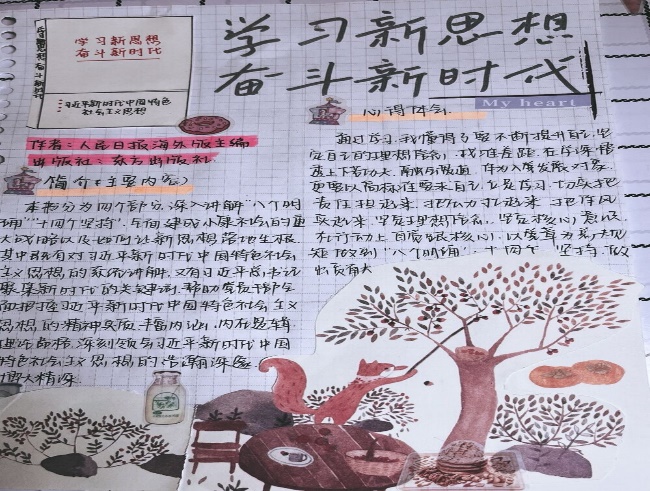 学习新思想
奋斗新时代
学习新思想
奋斗新时代
习近平新时代中国特色
社会主义思想
My heart
作者：人民日报海外版主编
出版社：东方出版社
简介（主要内容）
本书分为四个部分，深入讲解“八个明
确”“十四个坚持”，全面建成小康社会的重
大战略以及如何让新思想落地生根。
其中既有对习近平新时代中国特色社会
主义思想的系统讲解，又有习近平总书记
聚焦新时代的关键词，帮助广大干部全
面把握习近平新时代中国特色社会主义
思想的精神实质、丰富内涵、内在逻辑
理论品格，深刻领会习近平新时代中国
特色社会主义思想的浩瀚深邃
博大精深
心得体会
通过学习，我懂得了要不断提升自己，坚
定自己的理想信念，找准差距，在学深悟
透上下苦功夫，作为入党发展对象，
更要以高标准要求自己，切实把
责任担起来，把
起来，坚定理想信念，坚定核心意识，
在行动上
做到“八个明确”，“十四个坚持”，做